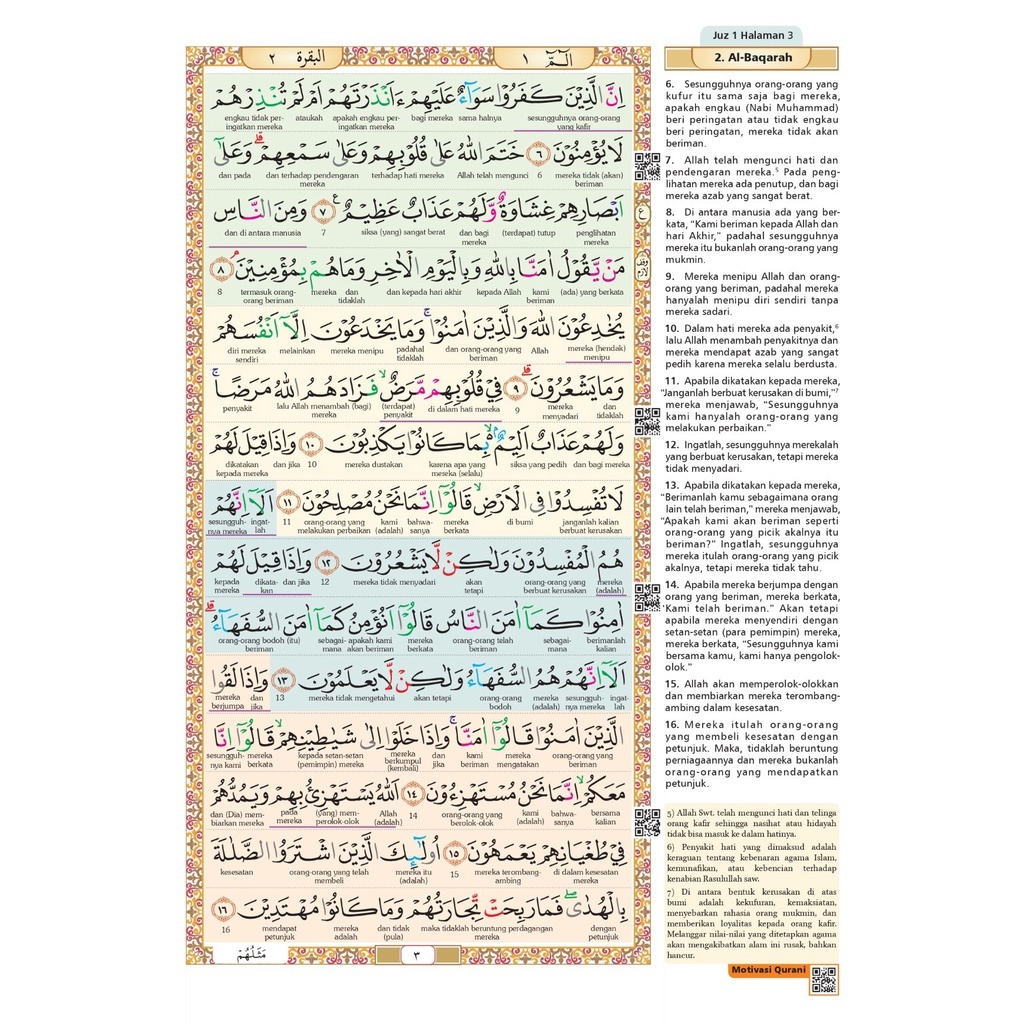 Juz 1 Halaman 3
2. Al-Baqarah
البقرة ٢
الٓمّٓ ١
اِنَّ الَّذِيْنَ كَفَرُوْا سَوَاۤءٌ عَلَيْهِمْ ءَاَنْذَرْتَهُمْ اَمْ لَمْ تُنْذِرْهُمْ
sesungguhnya orang-orang yang kafir sama halnya bagi mereka apakah engkau peringatkan mereka ataukah engkau tidak peringatkan mereka
لَا يُؤْمِنُوْنَ ٦ خَتَمَ اللّٰهُ عَلٰى قُلُوْبِهِمْ وَعَلٰى سَمْعِهِمْ ۗ وَعَلٰٓى
mereka tidak (akan) beriman 6 Allah telah mengunci terhadap hati mereka dan terhadap pendengaran mereka dan pada
اَبْصَارِهِمْ غِشَاوَةٌ وَّلَهُمْ عَذَابٌ عَظِيْمٌ ٧ وَمِنَ النَّاسِ
penglihatan mereka (terdapat) tutup dan bagi mereka siksa (yang) sangat berat 7 dan di antara manusia
مَنْ يَّقُوْلُ اٰمَنَّا بِاللّٰهِ وَبِالْيَوْمِ الْاٰخِرِ وَمَا هُمْ بِمُؤْمِنِيْنَ ۘ ٨
(ada) yang berkata kami beriman kepada Allah dan kepada hari akhir dan tidaklah mereka termasuk orang-orang beriman 8
يُخٰدِعُوْنَ اللّٰهَ وَالَّذِيْنَ اٰمَنُوْا ۚ وَمَا يَخْدَعُوْنَ اِلَّآ اَنْفُسَهُمْ
mereka (hendak) menipu Allah dan orang-orang yang beriman padahal tidaklah mereka menipu melainkan diri mereka sendiri
وَمَا يَشْعُرُوْنَ ۗ ٩ فِيْ قُلُوْبِهِمْ مَّرَضٌ ۙ فَزَادَهُمُ اللّٰهُ مَرَضًا ۚ
dan tidaklah mereka menyadari 9 di dalam hati mereka (terdapat) penyakit lalu Allah menambah (bagi) mereka penyakit
وَلَهُمْ عَذَابٌ اَلِيْمٌ ۢ ۙ بِمَا كَانُوْا يَكْذِبُوْنَ ١٠ وَاِذَا قِيْلَ لَهُمْ
dan bagi mereka siksa yang pedih karena apa yang mereka (selalu) mereka dustakan 10 dan jika dikatakan kepada mereka
لَا تُفْسِدُوْا فِى الْاَرْضِ ۙ قَالُوْٓا اِنَّمَا نَحْنُ مُصْلِحُوْنَ ١١ اَلَآ اِنَّهُمْ
janganlah kalian berbuat kerusakan di bumi mereka berkata bahwasanya kami (adalah) orang-orang yang melakukan perbaikan 11 ingatlah sesungguhnya mereka
هُمُ الْمُفْسِدُوْنَ وَلٰكِنْ لَّا يَشْعُرُوْنَ ١٢ وَاِذَا قِيْلَ لَهُمْ
mereka (adalah) orang-orang yang berbuat kerusakan akan tetapi mereka tidak menyadari 12 dan jika dikatakan kepada mereka
اٰمِنُوْا كَمَآ اٰمَنَ النَّاسُ قَالُوْٓا اَنُؤْمِنُ كَمَآ اٰمَنَ السُّفَهَاۤءُ ۗ
berimanlah kalian sebagaimana orang-orang telah beriman mereka berkata apakah kami akan beriman sebagaimana orang-orang bodoh (itu) beriman
اَلَآ اِنَّهُمْ هُمُ السُّفَهَاۤءُ وَلٰكِنْ لَّا يَعْلَمُوْنَ ١٣ وَاِذَا لَقُوا
ingatlah sesungguhnya mereka mereka (adalah) orang-orang bodoh akan tetapi mereka tidak mengetahui 13 dan jika mereka berjumpa
الَّذِيْنَ اٰمَنُوْا قَالُوْٓا اٰمَنَّا ۚ وَاِذَا خَلَوْا اِلٰى شَيٰطِيْنِهِمْ ۙ قَالُوْٓا اِنَّا
orang-orang yang beriman mereka mengatakan kami beriman dan jika mereka berkumpul (kembali) kepada setan-setan (pemimpin) mereka mereka berkata sesungguhnya kami
مَعَكُمْ ۙ اِنَّمَا نَحْنُ مُسْتَهْزِءُوْنَ ١٤ اَللّٰهُ يَسْتَهْزِئُ بِهِمْ وَيَمُدُّهُمْ
bersama kalian bahwasanya kami (adalah) orang-orang yang berolok-olok 14 Allah (adalah) (yang) memperolok-olok pada mereka dan (Dia) membiarkan mereka
فِيْ طُغْيَانِهِمْ يَعْمَهُوْنَ ١٥ اُولٰۤىِٕكَ الَّذِيْنَ اشْتَرَوُا الضَّلٰلَةَ
di dalam kesesatan mereka mereka terombang-ambing 15 mereka itu (adalah) orang-orang yang telah membeli kesesatan
بِالْهُدٰىۖ فَمَا رَبِحَتْ تِّجَارَتُهُمْ وَمَا كَانُوْا مُهْتَدِيْنَ ١٦
dengan petunjuk maka tidaklah beruntung perdagangan mereka dan tidak (pula) mereka adalah mendapat petunjuk 16
مَثَلُهُمْ
٣
ع
وقف لازم
6. Sesungguhnya orang-orang yang
kufur itu sama saja bagi mereka,
apakah engkau (Nabi Muhammad)
beri peringatan atau tidak engkau
beri peringatan, mereka tidak akan
beriman.
7. Allah telah mengunci hati dan
pendengaran mereka.⁵ Pada peng-
lihatan mereka ada penutup, dan bagi
mereka azab yang sangat berat.
8. Di antara manusia ada yang ber-
kata, “Kami beriman kepada Allah dan
hari Akhir,” padahal sesungguhnya
mereka itu bukanlah orang-orang yang
mukmin.
9. Mereka menipu Allah dan orang-
orang yang beriman, padahal mereka
hanyalah menipu diri sendiri tanpa
mereka sadari.
10. Dalam hati mereka ada penyakit,⁶
lalu Allah menambah penyakitnya dan
mereka mendapat azab yang sangat
pedih karena mereka selalu berdusta.
11. Apabila dikatakan kepada mereka,
“Janganlah berbuat kerusakan di bumi,”⁷
mereka menjawab, “Sesungguhnya
kami hanyalah orang-orang yang
melakukan perbaikan.”
12. Ingatlah, sesungguhnya merekalah
yang berbuat kerusakan, tetapi mereka
tidak menyadari.
13. Apabila dikatakan kepada mereka,
“Berimanlah kamu sebagaimana orang
lain telah beriman,” mereka menjawab,
“Apakah kami akan beriman seperti
orang-orang yang picik akalnya itu
beriman?” Ingatlah, sesungguhnya
mereka itulah orang-orang yang picik
akalnya, tetapi mereka tidak tahu.
14. Apabila mereka berjumpa dengan
orang yang beriman, mereka berkata,
“Kami telah beriman.” Akan tetapi
apabila mereka menyendiri dengan
setan-setan (para pemimpin) mereka,
mereka berkata, “Sesungguhnya kami
bersama kamu, kami hanya pengolok-
olok.”
15. Allah akan memperolok-olokkan
dan membiarkan mereka terombang-
ambing dalam kesesatan.
16. Mereka itulah orang-orang
yang membeli kesesatan dengan
petunjuk. Maka, tidaklah beruntung
perniagaannya dan mereka bukanlah
orang-orang yang mendapatkan
petunjuk.
5) Allah Swt. telah mengunci hati dan telinga
orang kafir sehingga nasihat atau hidayah
tidak bisa masuk ke dalam hatinya.
6) Penyakit hati yang dimaksud adalah
keraguan tentang kebenaran agama Islam,
kemunafikan, atau kebencian terhadap
kenabian Rasulullah saw.
7) Di antara bentuk kerusakan di atas
bumi adalah kekufuran, kemaksiatan,
menyebarkan rahasia orang mukmin, dan
memberikan loyalitas kepada orang kafir.
Melanggar nilai-nilai yang ditetapkan agama
akan mengakibatkan alam ini rusak, bahkan
hancur.
Motivasi Qurani